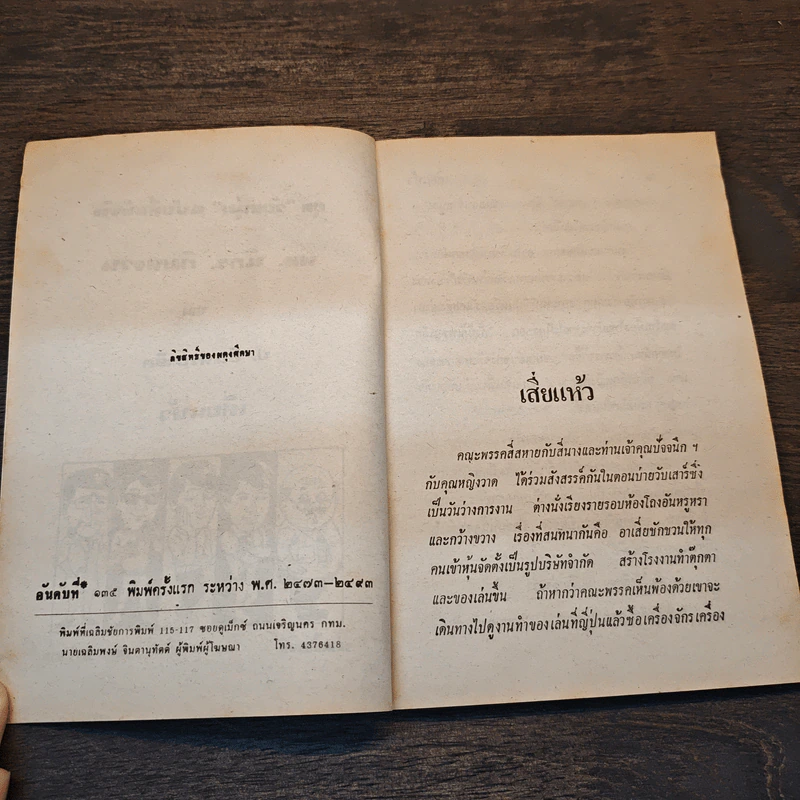 ลิขสิทธิ์ของผดุงศึกษา
อันดับที่ ๑๓๕ พิมพ์ครั้งแรก ระหว่าง พ.ศ. ๒๔๗๓–๒๔๙๓
พิมพ์ที่เฉลิมชัยการพิมพ์ 115-117 ซอยดูเม็กซ์ ถนนเจริญนคร กทม.
นายเฉลิมพงษ์ จินดานุทัตต์ ผู้พิมพ์ผู้โฆษณา โทร. 4376418
เสี่ยแห้ว
คณะพรรคสี่สหายกับสี่นางและท่านเจ้าคุณปัจจนึก ฯ
กับคุณหญิงวาด ได้ร่วมสังสรรค์กันในตอนบ่ายวันเสาร์ซึ่ง
เป็นวันว่างการงาน ต่างนั่งเรียงรายรอบห้องโถงอันหรูหรา
และกว้างขวาง เรื่องที่สนทนากันคือ อาเสี่ยชักชวนให้ทุก
คนเข้าหุ้นจัดตั้งเป็นรูปบริษัทจำกัด สร้างโรงงานทำตุ๊กตา
และของเล่นขึ้น ถ้าหากว่าคณะพรรคเห็นพ้องด้วยเขาจะ
เดินทางไปดูงานทำของเล่นที่ญี่ปุ่นแล้วซื้อเครื่องจักรเครื่อง